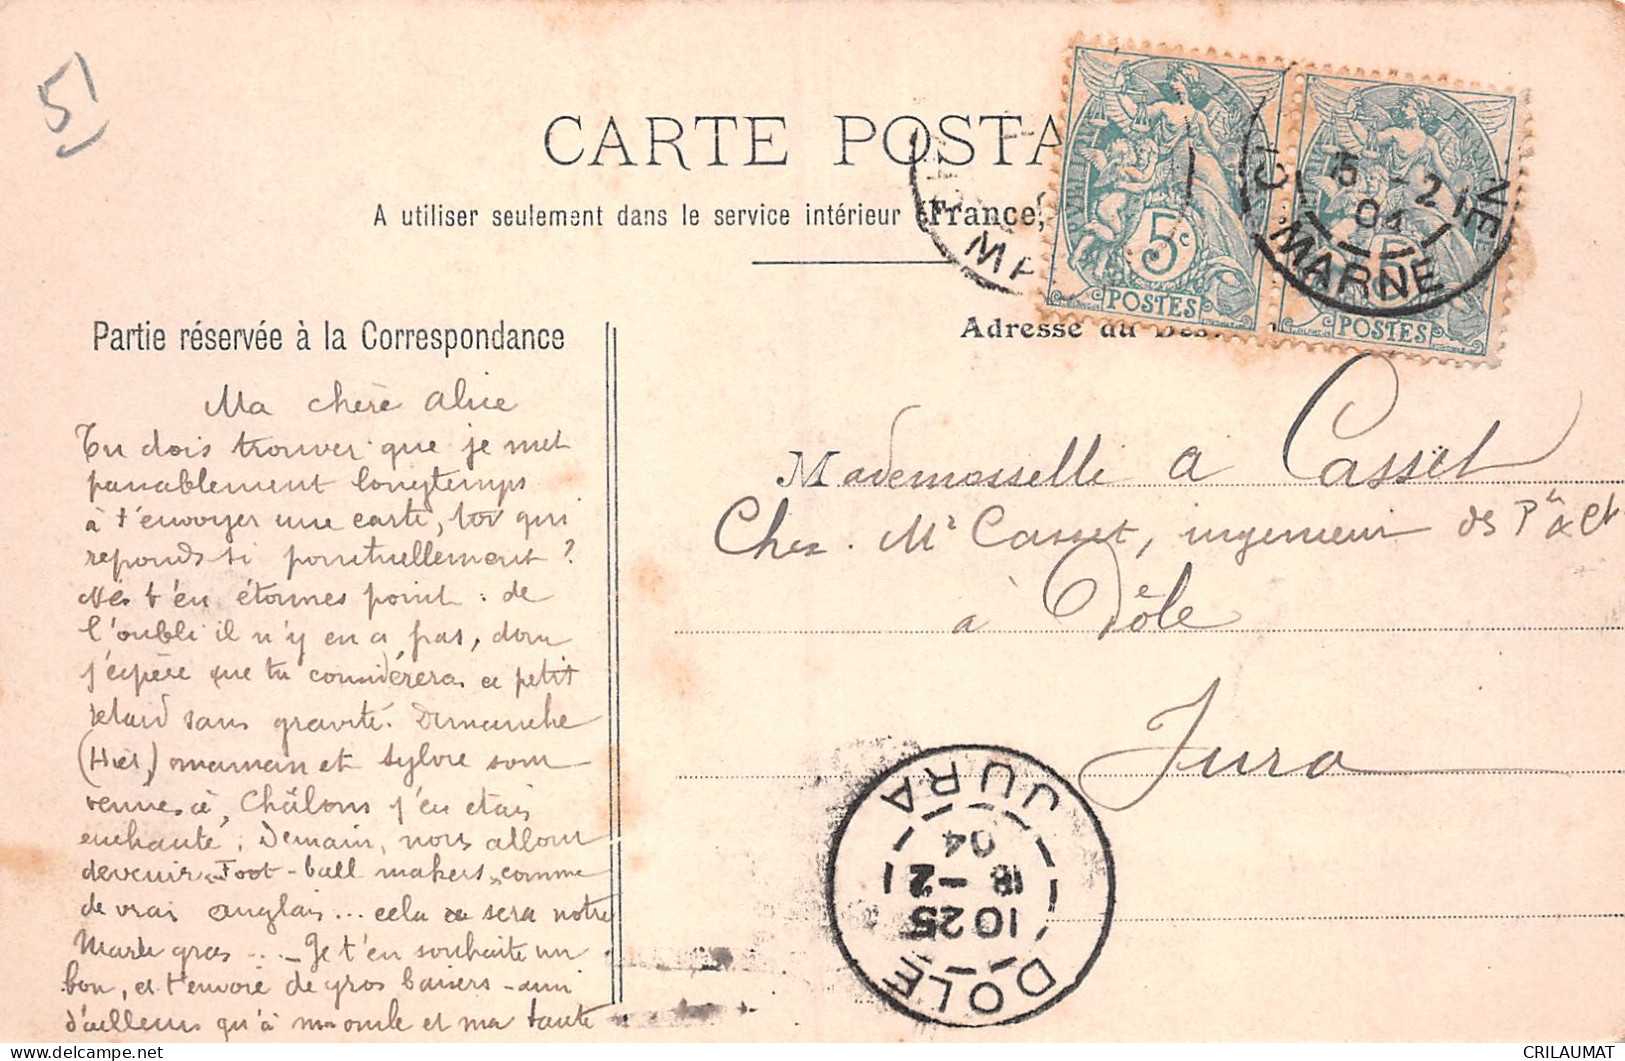 5
CARTE POSTA
A utiliser seulement dans le service intérieur (France,
Partie réservée à la Correspondance
Ma chère Alice
Tu dois trouver que je met
passablement longtemps
à t'envoyer une carte, toi qui
reponds si ponctuellement ?
Nes t'en étonnes point : de
l'oubli il n'y en a pas, donc
j'espère que tu considéreras ce petit
retard sans gravité. Dimanche
(Hier) maman et Sylvie sont
venues à Châlons j'en etais
enchanté. Demain, nous allons
devenir "Foot-ball makers" comme
de vrais anglais... cela sera notre
Mardi gras ... - Je t'en souhaite un
bon, et t'envoie de gros baisers - ainsi
d'ailleurs qu'à mon oncle et ma tante
Adresse du Des
Mademoiselle A Casset
Chez Mr Casset, ingenieur des Pts & Ch
à Dôle
Jura
5c
POSTES
POSTES
15 -2
04
MARNE
DOLE
1025
18 -2
04
JURA
CRILAUMAT